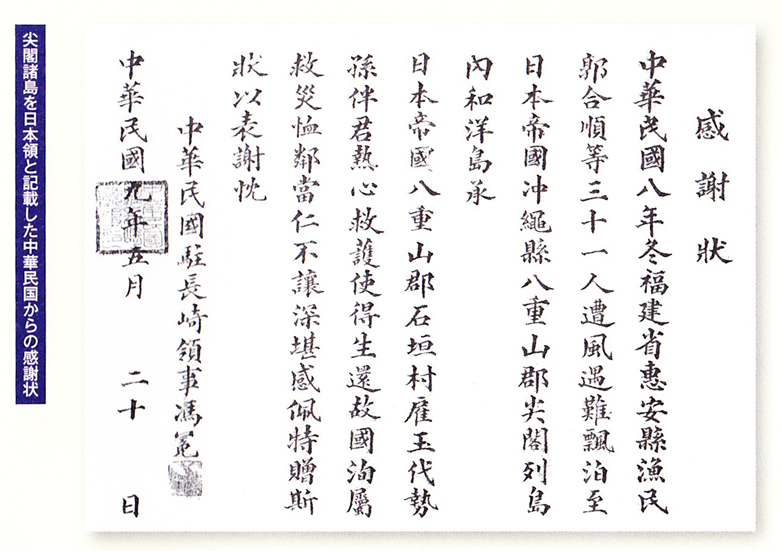 感謝狀
中華民國八年冬福建省惠安縣漁民
郭合順等三十一人遭風遇難飄泊至
日本帝國冲繩縣八重山郡尖閣列島
內和洋島承
日本帝國八重山郡石垣村雇玉代勢
孫伴君熱心救護使得生還故國洵屬
救災恤鄰當仁不讓深堪感佩特贈斯
狀以表謝忱
中華民國駐長崎領事馮冕
中華民國九年五月二十日
尖閣諸島を日本領と記載した中華民国からの感謝状